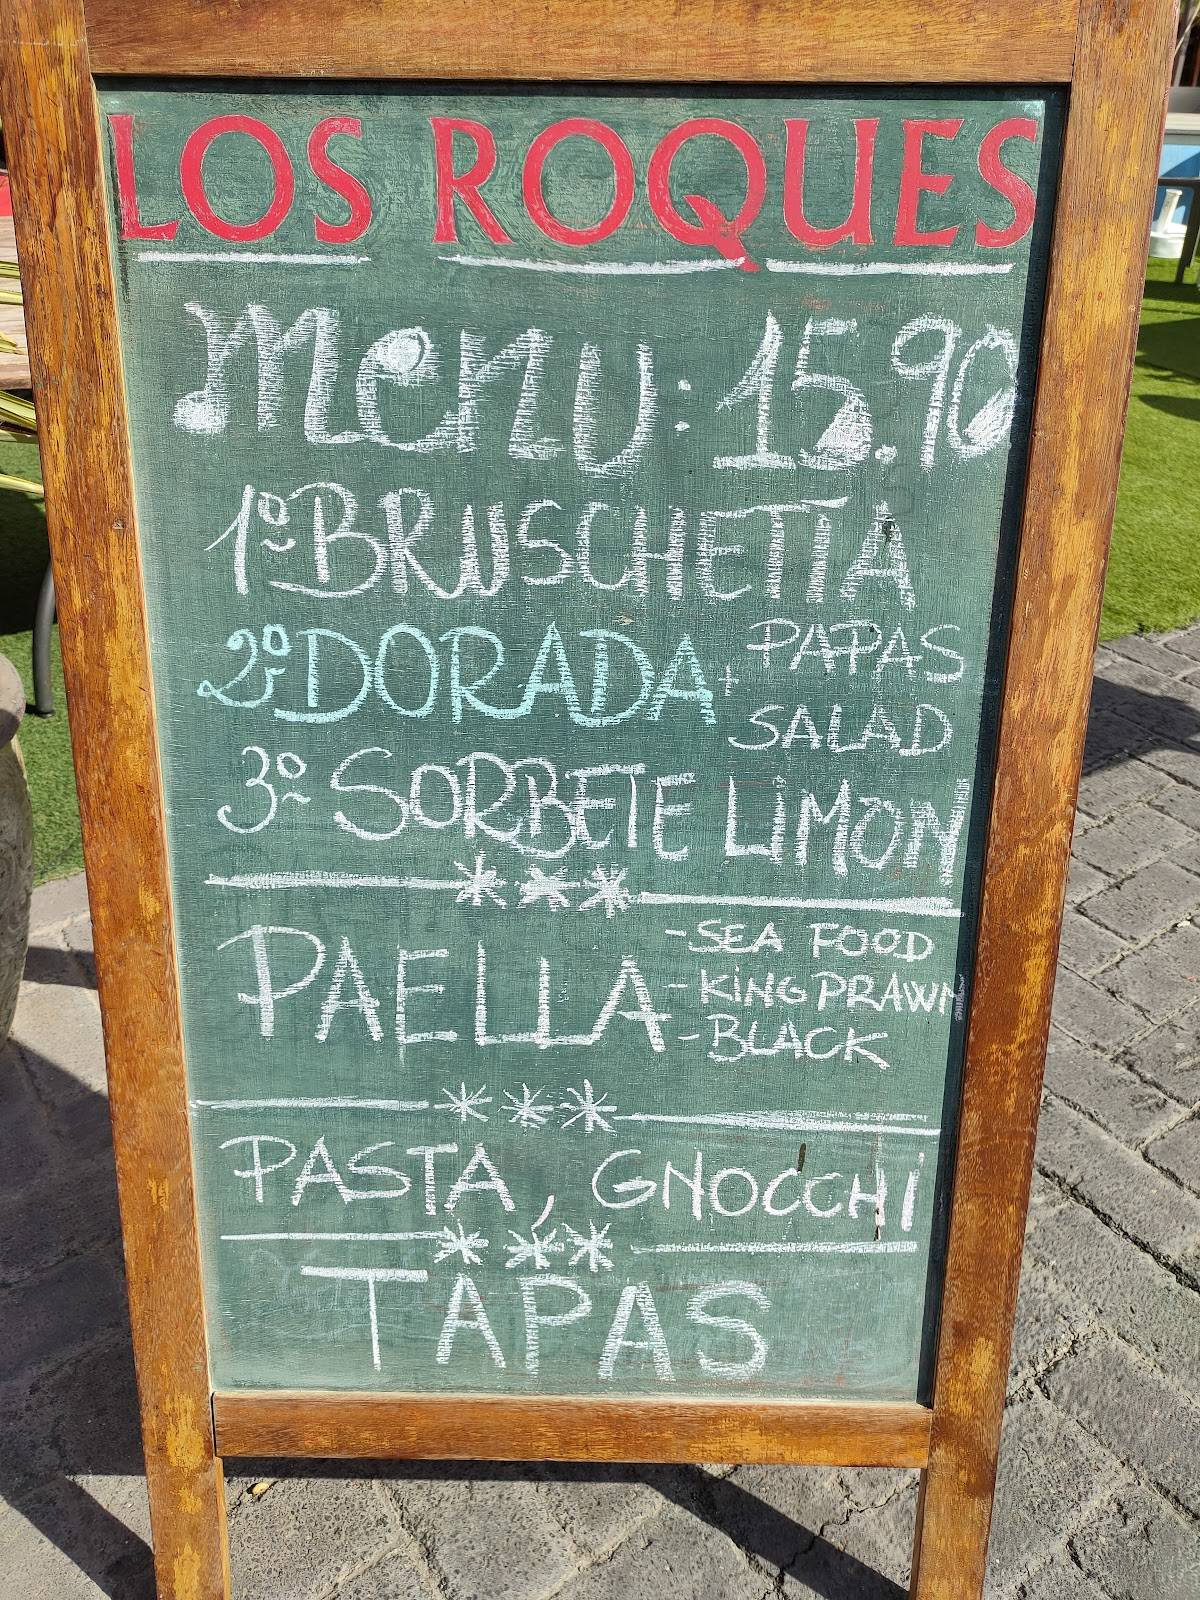 LOS ROQUES
Menu: 15.90
1º BRUSCHETTA
2º DORADA + PAPAS
SALAD
3º SORBETE LIMON
***
PAELLA - SEA FOOD
- KING PRAWN
- BLACK
***
PASTA, GNOCCHI
***
TAPAS